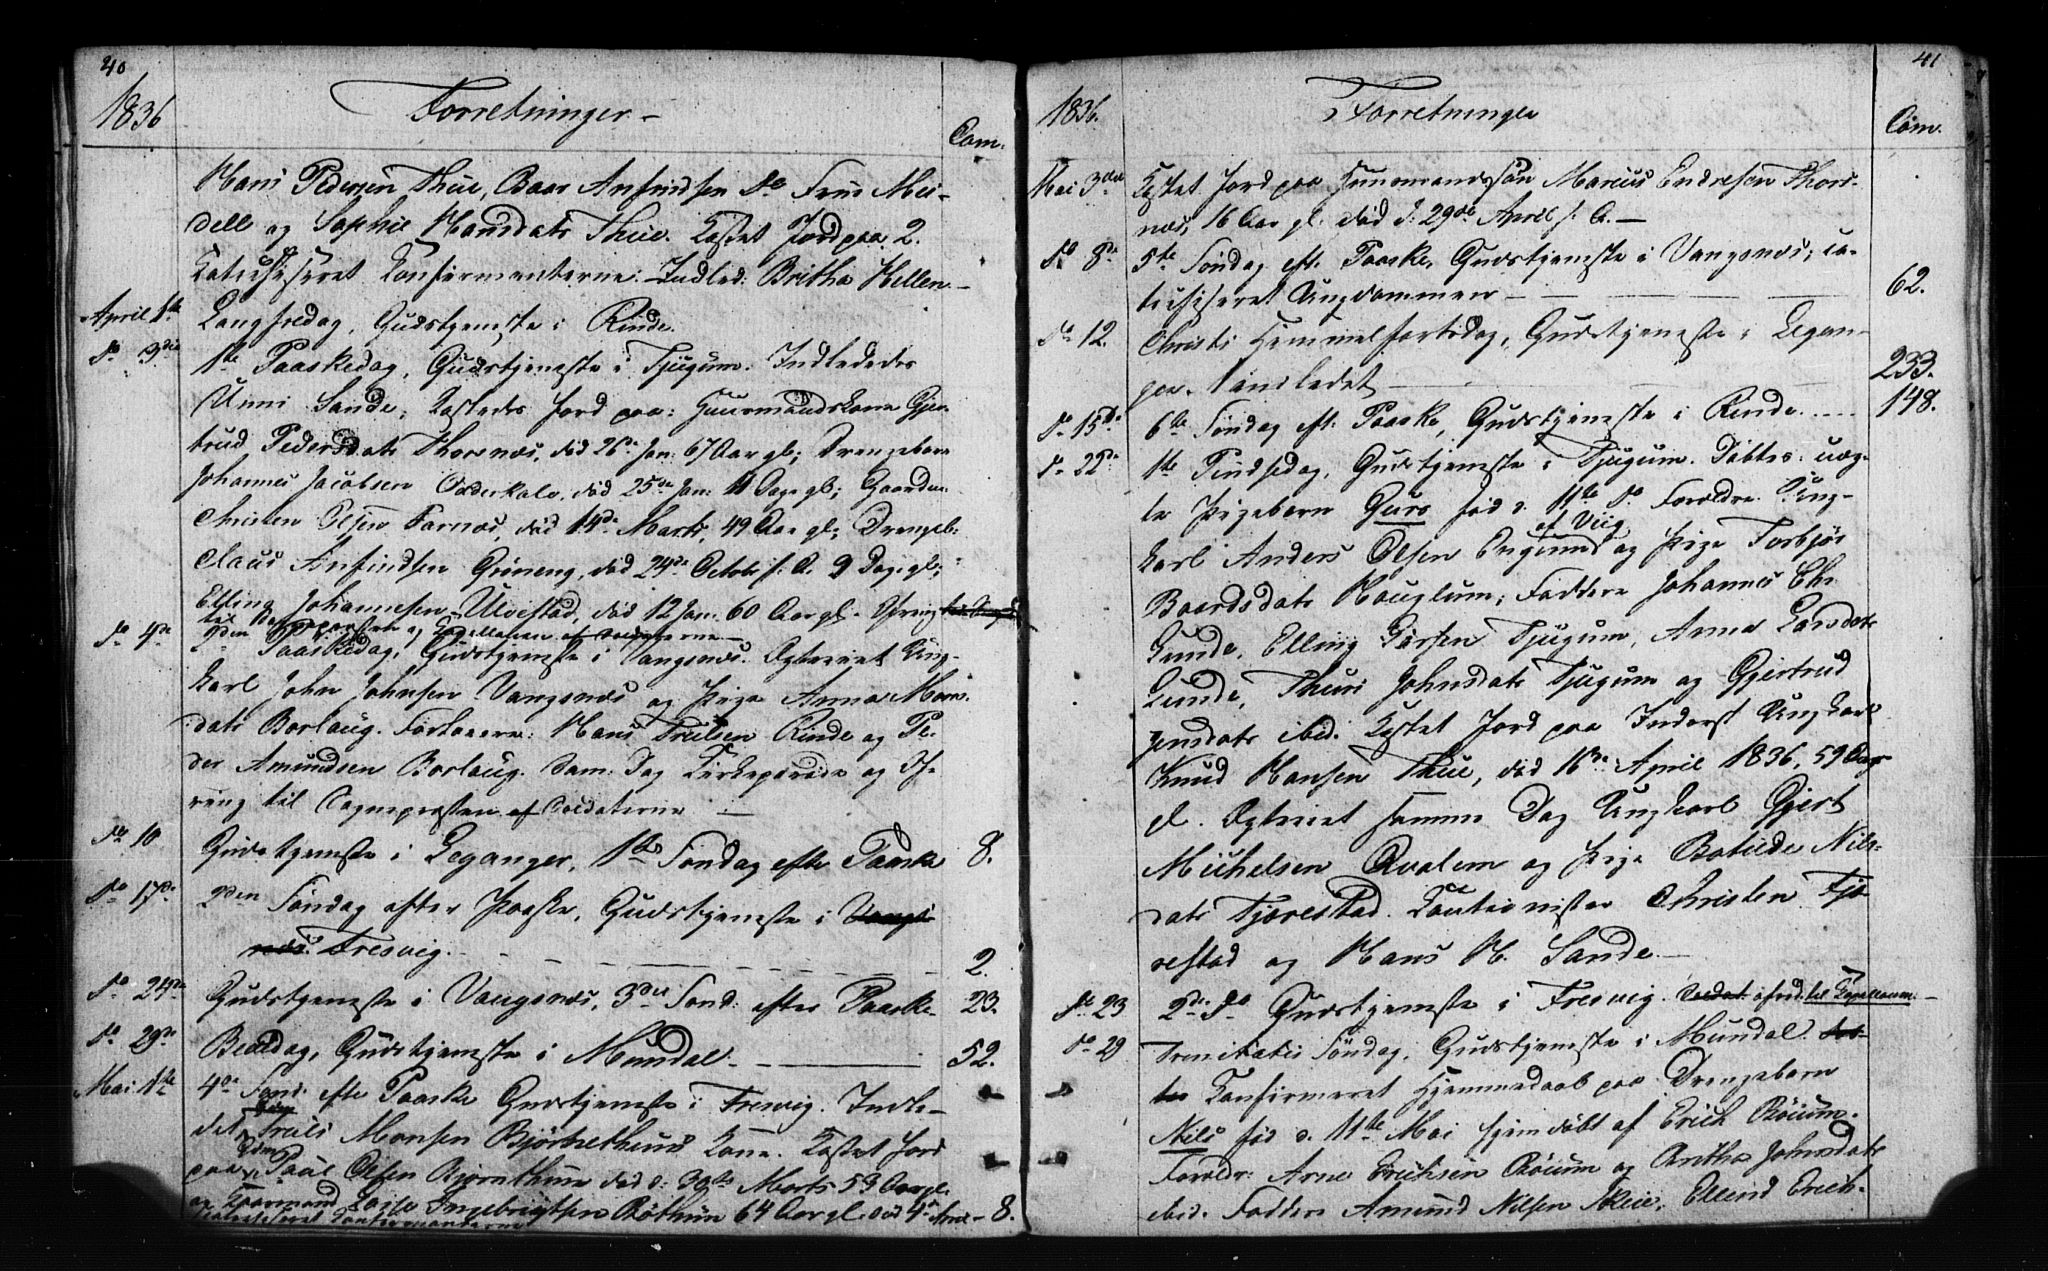 40
1836 Forretninger - Com.
Hans Pedersen Thue, Baar Anfindsen do Friis Mei-
dell og Sophie Hansdatr Thue. Kastet Jord paa 2.
Katechiseret Konfirmanterne. Indled: Britha Hellen.-
April 1ste Langfredag, Gudstjeneste i Rinde.
do 3die 1ste Paaskedag, Gudstjeneste i Tjugum. Indlededes
Unni Sande; Kastedes Jord paa: Huusmandskone Gjer-
trud Pedersdatr Thorsnæs, død 26de Jan: 67 Aar gl; Drengebarn
Johannes Jacobsen død 25de Jan: 11 Dage gl; Gaardm.
Christen Olsen Farnæs, død 14de Marts, 49 Aar gl; Drengeb:
Claus Anfindsen død 24de Octobr f. A. 9 Dage gl;
Elling Johannesen Ulvestad, død 12 Jan: 60 Aar gl. Ofring
til Sognepræsten og Capellanen af
do 4de 2den Paaskedag, Gudstjeneste i Vangsnæs. Ægteviet Ung-
karl John Johnsen Vangsnæs og Pige Anna Mons-
datr Borlaug. Forlovere: Hans Trulsen Rinde og Pe-
der Amundsen Borlaug. Sam: Dag Kirkeparade og Of-
ring til Sognepræsten af Soldaterne -
do 10 Gudstjeneste i Leganger, 1ste Søndag efter Paaske 8.
do 17de 2den Søndag efter Paaske, Gudstjeneste i Vangs-
næs Fresvig. - - - 2.
do 24de Gudstjeneste i Vangsnæs, 3die Sønd: efter Paaske 23.
do 29de Bededag, Gudstjeneste i Mundal. - - 52.
Mai 1ste 4de Sønd: efter Paaske Gudstjeneste i Fresvig. Indle-
det Truls Monsen Bjørnethuns Kone. Kastet Jord
paa Paul Olsen Bjørnthun død d: 30te Marts 53 Aar gl.
og Gaardmand Lasse Ingebrigtsen Bøthun 64 Aar gl. død 4de 8.
Katechiseret Konfirmanterne
41
1836. Forretninger Com.
Mai 3die Kastet Jord paa Huusmandssøn Marcus Endresen Thors-
næs, 16 Aar gl. død d: 29de April f. A. -
do 8de 5te Søndag eft. Paaske, Gudstjeneste i Vangsnæs; ca-
techiseret Ungdommen - - - 62.
do 12. Christi Himmelfartsdag, Gudstjeneste i Legan-
ger. Indledet - - 233.
do 15de 6te Søndag eft: Paaske, Gudstjeneste i Rinde. .... 148.
do 22de 1ste Pindsedag, Gudstjeneste i Tjugum. Døbtes: uæg-
te Pigebarn Guro fød d. 11te do Forældre: Ung-
af Viig
karl Anders Olsen og Pige Torbjør
Baardsdatr Hauglum; Faddere Johannes Ch.
Lunde, Elling Tjugum, Anna Larsdatr
Lunde, Thuri Johnsdatr Tjugum og Gjertrud
Jensdatr ibid. Kastet Jord paa Inderst Ungkarl
Knud Hansen Thue, død 16de April 1836, 59 Aar
gl. Ægteviet samme Dag Ungkarl Gjert
Michelsen Qvalem og Pige Botilde Nils-
datr Tjærestad. Kautionister Christen Tjæ-
restad og Hans H. Sande. -
do 23 2de do Gudstjeneste i Fresvig. Soldat ofred: til Capellanen. -
do 29 Trinitatis Søndag, Gudstjeneste i Mundal.
Konfirmeret Hjemmedaab paa Drengebarn
Nils fød d. 11te Mai hjemdøbt af Erich Røium.
Forældr: Arne Erichsen Røium og Antha Johnsdatr
ibid. Faddere Amund Nilsen Skeie, Ellend Erich-